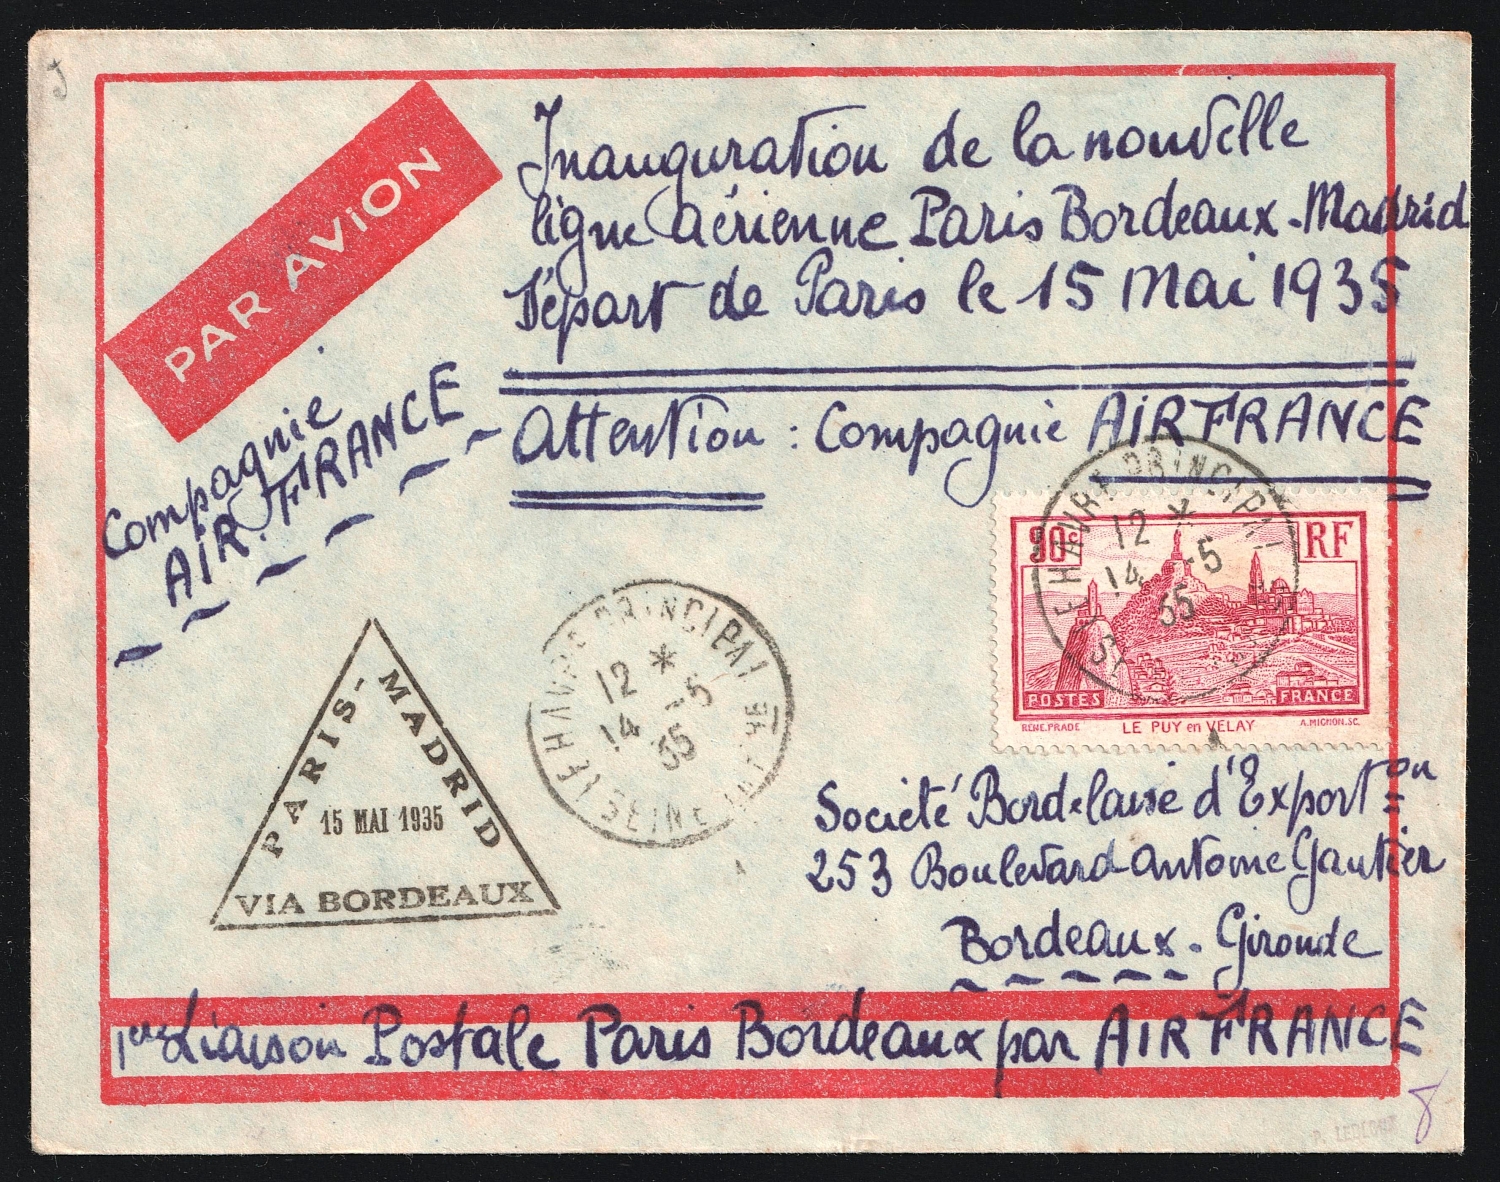 PAR AViON
Inauguration de la nouvelle
ligne aérienne Paris Bordeaux-Madrid
Départ de Paris le 15 Mai 1935
Attention : Compagnie AiR FRANCE
Compagnie
AiR. FRANCE
LE HAVRE PRINCIPAL
12 *
14 -5
35
90c RF
POSTES FRANCE
RENE.PRADE LE PUY en VELAY A.MIGNON.SC.
LE HAVRE PRINCIPAL
12 *
14 -5
35
SEINE INF
PARIS-MADRID
15 MAI 1935
VIA BORDEAUX
Société Bordelaise d'Exporton
253 Boulevard Antoine Gautier
Bordeaux. Gironde
1ere Liaison Postale Paris Bordeaux par AiR FRANCE